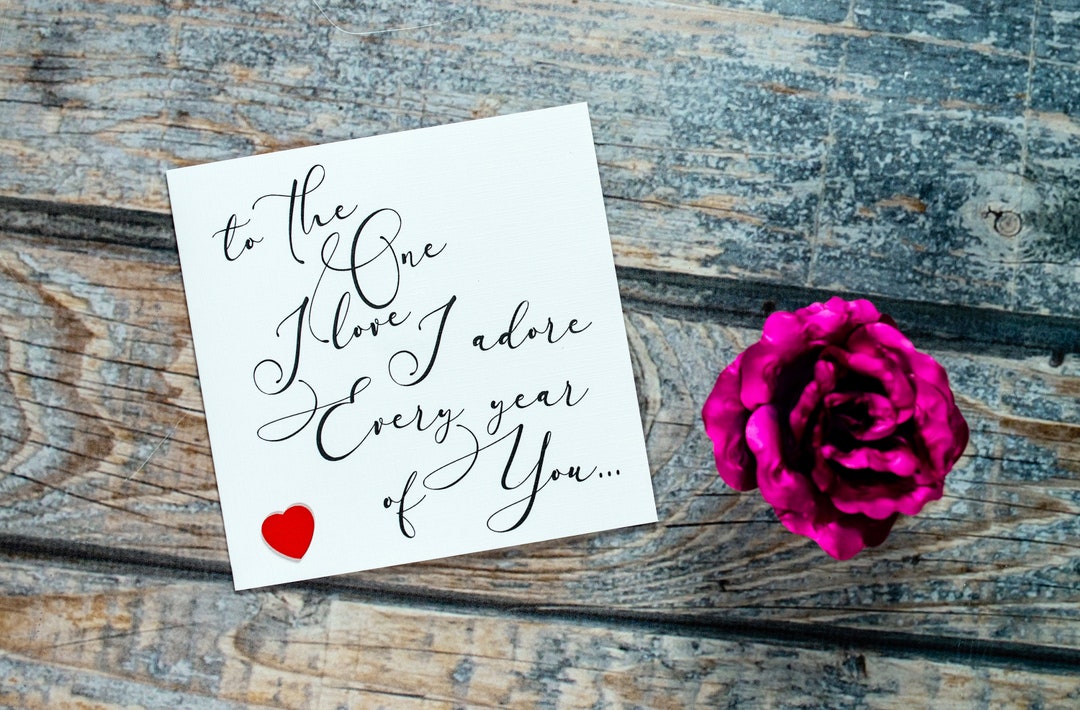 to the
One
I love I adore
Every year
of You...